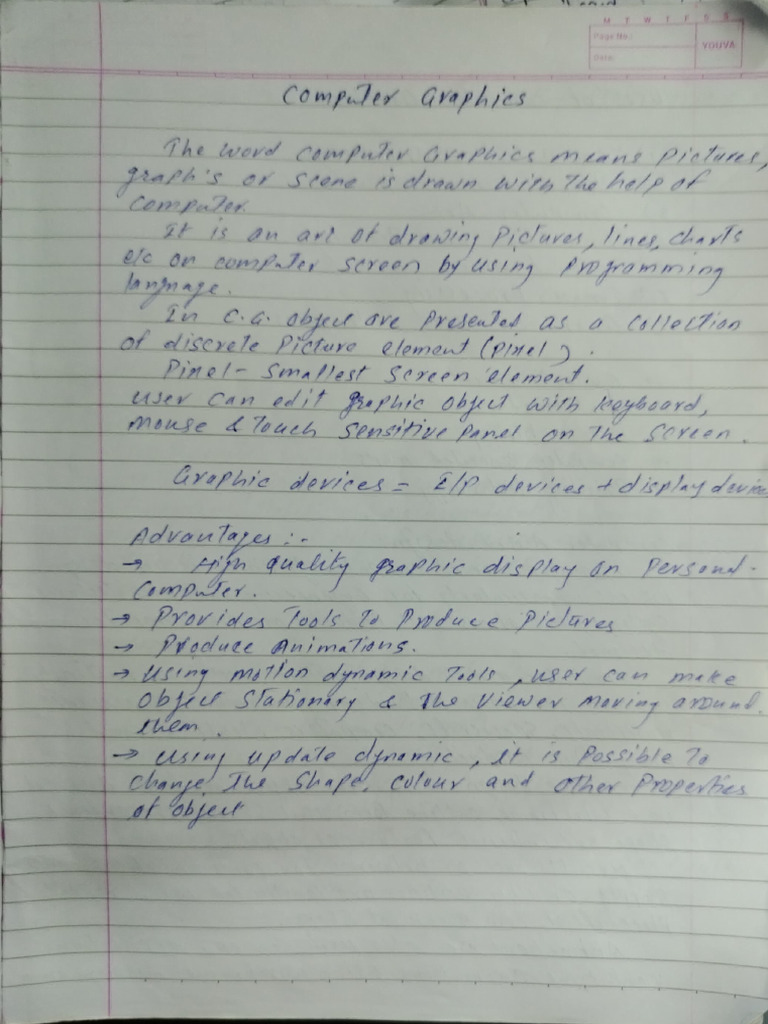 M T W T F S S
Page No.:
YOUVA
Date:
Computer Graphics
The word Computer Graphics means Pictures,
graph's or Scene is drawn with the help of
Computer.
It is an art of drawing Pictures, lines, Charts
etc on computer screen by using Programming
language.
In C.G. object are Presented as a Collection
of discrete Picture element (Pixel).
Pixel - Smallest Screen element.
User can edit graphic object with keyboard,
mouse & Touch Sensitive Panel on the Screen.
Graphic devices = I/P devices + display device
Advantages :-
→ High quality graphic display on Personal
Computer.
→ Provides Tools To Produce Pictures
→ Produce Animations.
→ Using motion dynamic Tools, user can make
Object Stationary & The Viewer moving around
them.
→ Using update dynamic, it is Possible To
Change The Shape, colour and other Properties
of object